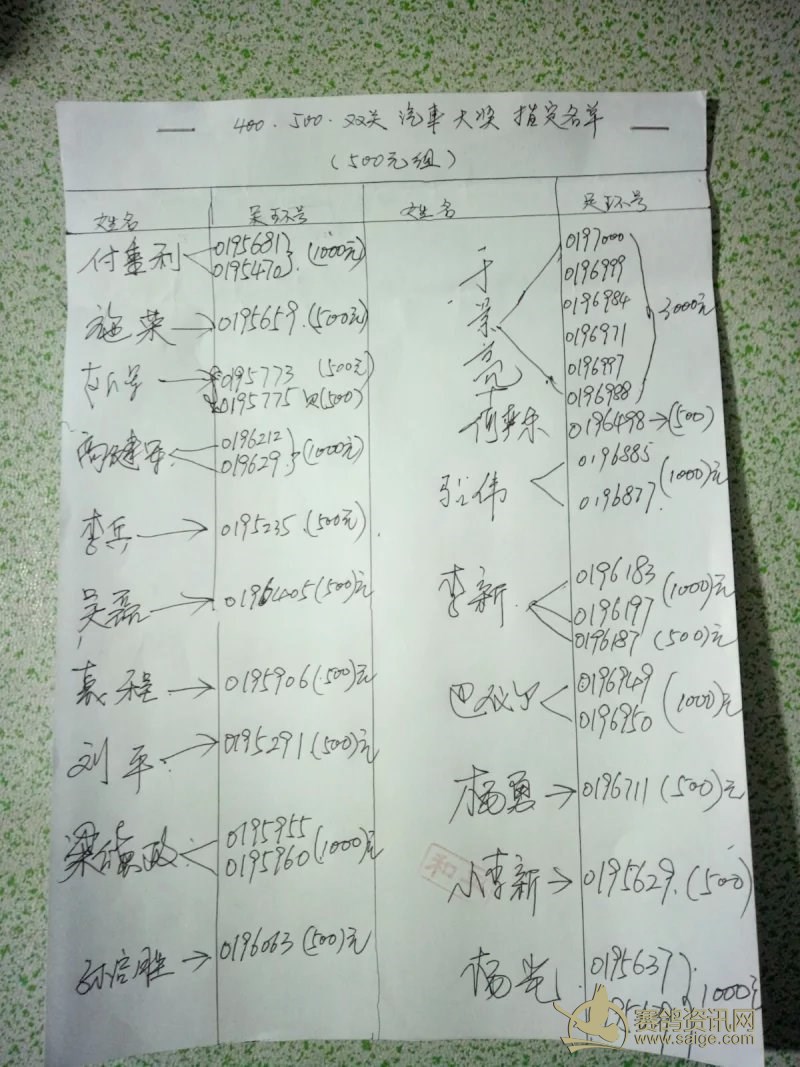 400.500.双关 汽车大奖 指定名单
(500元组)
姓名 足环号 姓名 足环号
付重利 0195681 (1000元)
0195470
施荣 0195659.(500元)
0195773 (500元)
0195775 (500)
高建军 0196212 (1000元)
019629
李兵 0195235.(500元)
吴磊 0196405(500)元
袁程 0195906(500)元
刘平 0195291(500)元
梁 政 0195955 (1000)元
0195960
孙启胜 0196063(500)元
于景亮 0197000 3000元
0196999
0196984
0196971
0196997
0196988
0196498 (500)
张伟 0196885 (1000)元
0196877
李新 0196183 (1000)元
0196197
0196187 (500)元
0196949 (1000)元
0196950
杨勇 0196711 (500)元
和
小李新 0195629.(500)
杨光 0195637 1000元
赛鸽资讯网
www.saige.com